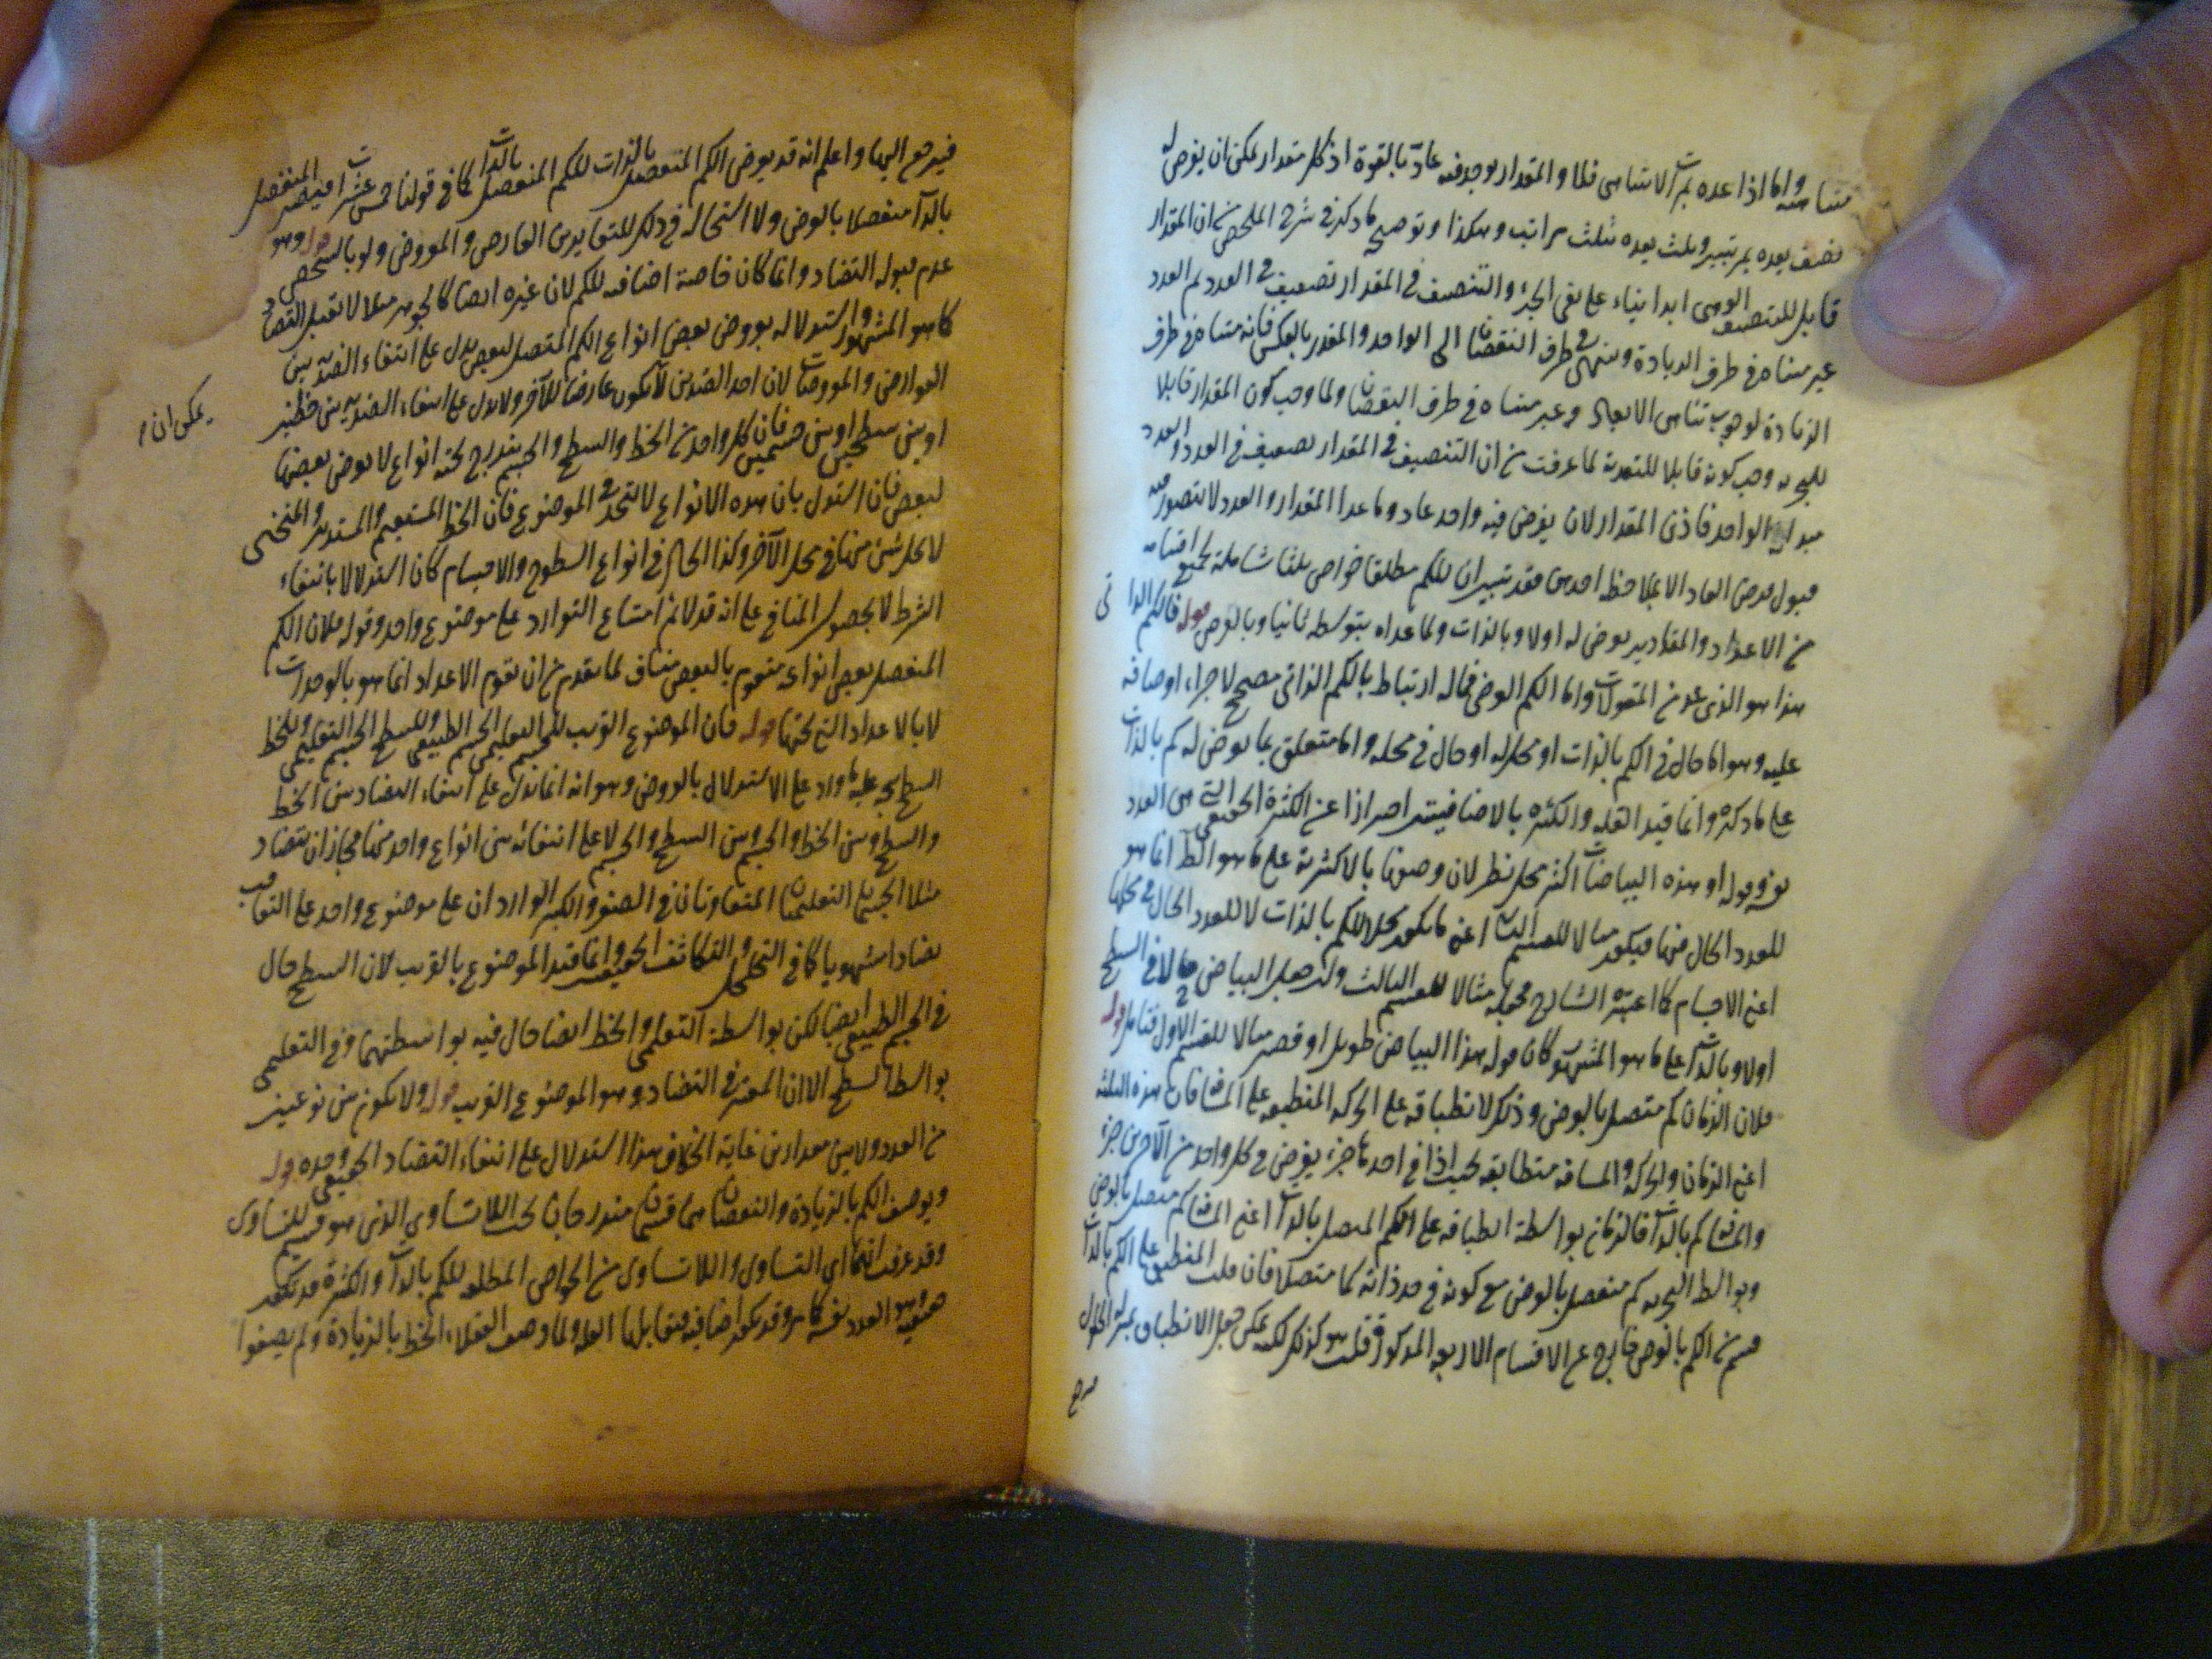 متناهية واما اذا عده بمرات لا تتناهى فلا والمقدار يوجد فيه عاد بالقوة اذ كل مقدار يمكن ان يفرض له
نصف يعده بمرتبتين وثلث يعده بثلث مراتب وهكذا وتوضيحه ما ذكر في شرح الملخص من ان المقدار
قابل للتنصيف الوهمى ابدا بناء على نفى الجزء والتنصيف في المقدار تضعيف في العدد ثم العدد
غير متناه في طرف الزيادة وينتهى في طرف النقصان الى الواحد والمقدر بالعكس فانه متناه في طرف
الزيادة لوجوب تناهى الابعاد وغير متناه في طرف النقصان ولما وجب كون المقدار قابلا
للتجزية وجب كونه قابلا للتعدية لما عرفت من ان التنصيف في المقدار تضعيف في العدد والعدد
مبداه الواحد فاذن المقدار لان يفرض فيه واحد عاد وما عدا المقدار والعدد لا يتصور فيه
قبول فرض العاد الا بملاحظة احدهما فقد تبين ان للكم مطلقا خواص ثلثا شاملة لجميع اقسامه
من الاعداد والمقادير يعرض له اولا وبالذات ولما عداه بتوسطه ثانيا وبالعرض قوله فالكم الذاتى
هذا هو الذى عد من المقولات واما الكم العرضى فماله ارتباط بالكم الذاتى مصحح لاجراء اوصافه
عليه وهو اما حال في الكم بالذات او محل له او حال في محله واما متعلق بما يعرض له كم بالذات
على ما ذكره وانما قيد القلة والكثرة بالاضافيتين احترازا عن الكثرة الحقيقية التى هى العدد
نفسه وقوله او هذه البياضات اكثر محل نظر لان وصفها بالاكثرية على ما هو الظ انما هو
للعدد الحال فيها فيكون مثالا للقسم الثانى اعنى ما يكون محلا للكم بالذات لا للعدد الحال في محلها
اعنى الاجسام كما اعتبره الشارح فجعله مثالا للقسم الثالث ولئن جعل البياض حالا في السطح
اولا وبالذات على ما هو المشهور كان قوله هذا البياض طويل او قصير مثالا للقسم الاول فتامل قوله
فلان الزمان كم متصل بالعرض وذلك لانطباقه على الحركة المنطبعة على المسافة فان هذه الثلثة
اعنى الزمان والحركة والمسافة متطابقة بحيث اذا في احدها جزء يفرض في كل واحد من الآخرين جزء
والمسافة كم بالذات فالزمان بواسطة انطباقه على الكم المتصل بالذات اعنى المسافة كم متصل بالعرض
وبواسطة التجزية كم منفصل بالعرض مع كونه في حد ذاته كما متصلا فان قلت المنطبق على الكم بالذات
قسم من الكم بالعرض خارج عن الاقسام الاربعة المذكورة قلت هو كذلك لكنه يمكن جعل الانطباق بمنزلة الحلول
فيرجع اليها واعلم انه قد يعرض الكم المنفصل بالذات للكم المنفصل بالذات كما في قولنا خمس عشرات فيصير المنفصل
بالذات منفصلا بالعرض ولا استحالة في ذلك للتغاير بين العارض والمعروض ولو بالشخص قوله وهو
عدم قبوله التضاد وانما كان خاصة اضافية للكم لان غيره ايضا كالجوهر مثلا لا يقبل التضاد
كما هو المشهور واستدلاله بعروض بعض انواع الكم المتصل لبعض يدل على انتفاء الضدية بين
العوارض والمعروضات لان احد الضدين لا يكون عارضا للآخر ولا يدل على انتفاء الضدية بين خطين
او بين سطحين او بين جسمين فان كل واحد من الخط والسطح والجسم يندرج تحته انواع لا يعرض بعضها
لبعض فان استدل بان هذه الانواع لا تتحد في الموضوع فان الخط المستقيم والمستدير والمنحنى
لا يحل شئ منها في محل الآخر وكذا الحال في انواع السطوح والاجسام كان استدلالا بانتفاء
الشرط لا بحصول المنافى على انه قد لا يتم امتناع التوارد على موضوع واحد وقوله فلان الكم
المنفصل بعض انواعه متقوم بالبعض مناف لما تقدم من ان تقوم الاعداد انما هو بالوحدات
لا بالاعداد التى تحتها قوله فان الموضوع القريب للجسم التعليمى الجسم الطبيعى وللسطح الجسم التعليمى وللخط
السطح يتجه عليه ما ورد على الاستدلال بالعروض وهو انه انما يدل على انتفاء التضاد بين الخط
والسطح وبين الخط والجسم وبين السطح والجسم لا على انتفائه بين انواع واحد منها فجاز ان يتضاد
مثلا الجسمان التعليميان المتفاوتان في الصغر والكبر الواردان على موضوع واحد على التعاقب
تضادا مشهوريا كما في التخلخل والتكاثف الحقيقيين وانما قيد الموضوع بالقريب لان السطح حال
في الجسم الطبيعى ايضا لكن بواسطة التعليمى والخط ايضا حال فيه بواسطتهما وفي التعليمى
بواسطة السطح الا ان المعتبر في التضاد هو الموضوع القريب قوله ولا يكون بين نوعين
من العدد ولا بين مقدارين غاية الخلاف هذا استدلال على انتفاء التضاد الحقيقى وحده قوله
ويوصف الكم بالزيادة والنقصان هما قسمان مندرجان تحت اللاتساوى الذى هو قسيم للتساوى
وقد عرفت انهما اى التساوى واللاتساوى من الخواص المطلقة للكم بالذات والكثرة قد تكون
حقيقية وهو العدد نفسه كما مر وقد تكون اضافية يقابلها القلة ولما وصف العقلاء الخط بالزيادة ولم يصفوا
يمكن ان م